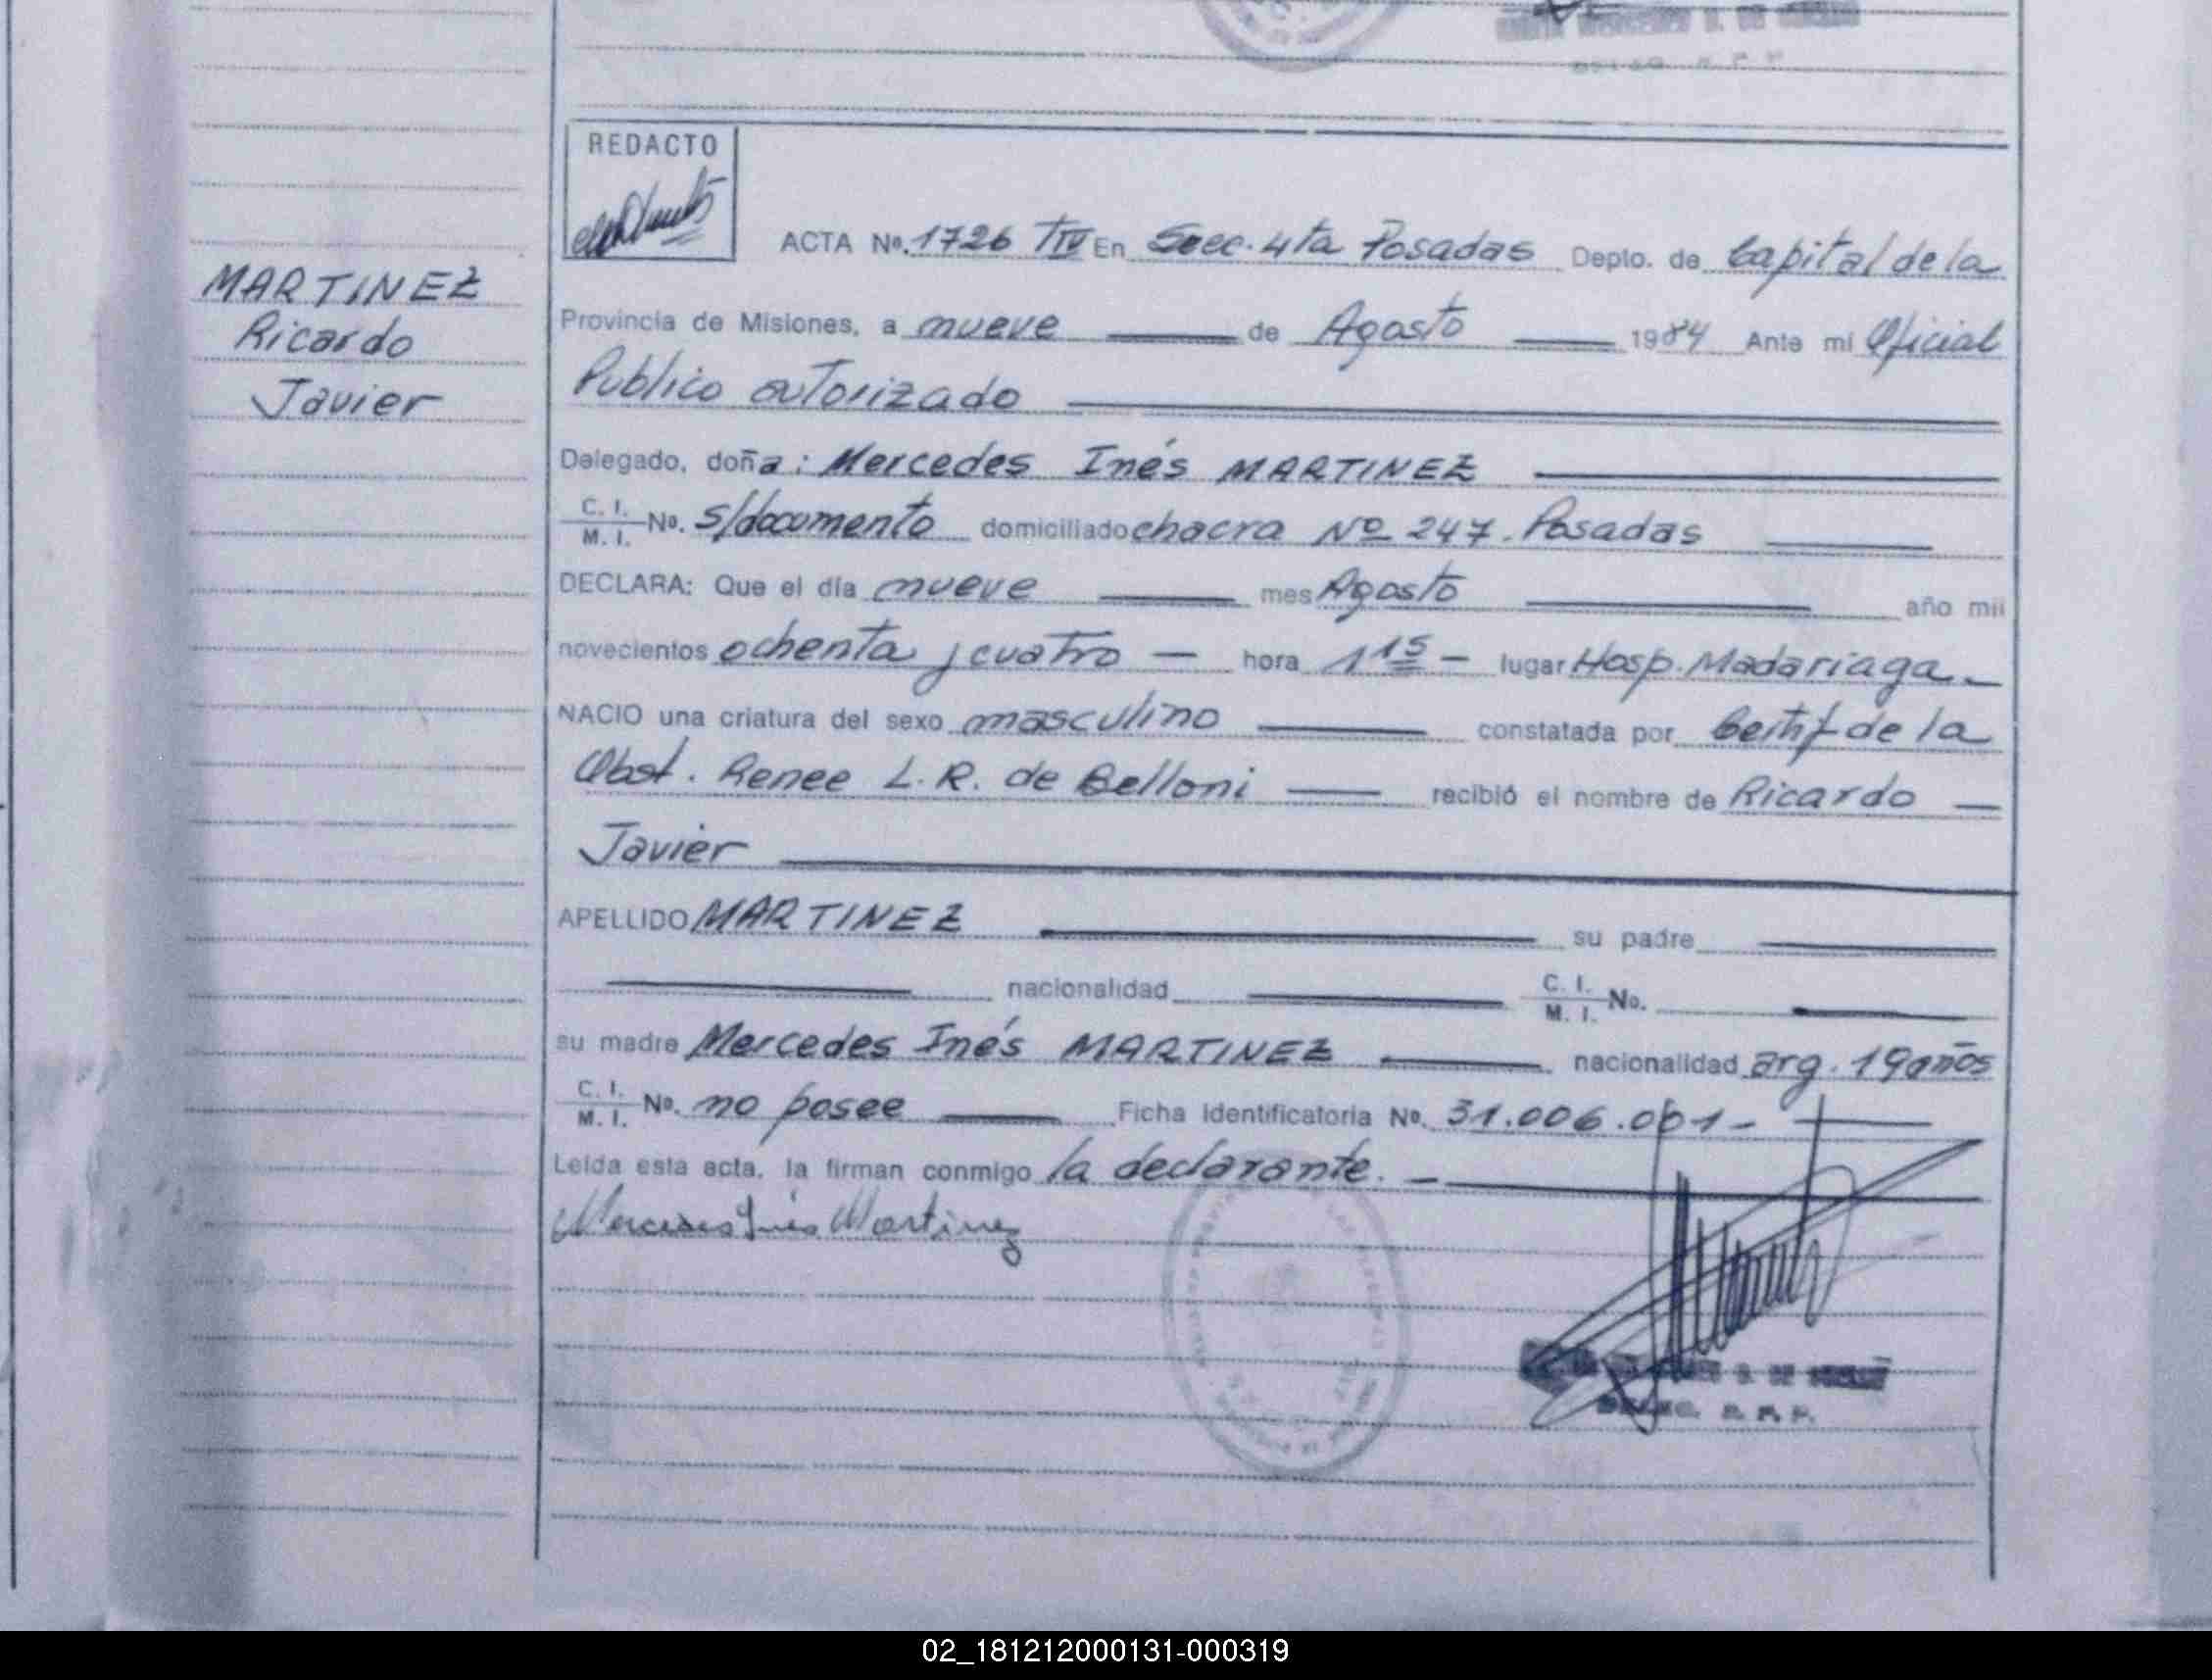 REDACTO
ACTA Nº. 1726 TIV En Secc. 4ta Posadas Depto. de Capital de la
MARTINEZ
Ricardo
Javier
Provincia de Misiones, a nueve de Agosto 1984 Ante mi Oficial
Publico autorizado
Delegado, doña: Mercedes Inés MARTINEZ
C. I. M. I. No. s/documento domiciliado chacra Nº 247. Posadas
DECLARA: Que el día nueve mes Agosto año mil
novecientos ochenta y cuatro — hora 1 15 — lugar Hosp. Madariaga.-
NACIO una criatura del sexo masculino constatada por Certif de la
Obst. Renee L. R. de Belloni — recibió el nombre de Ricardo —
Javier
APELLIDO MARTINEZ su padre
nacionalidad C. I. M. I. No.
su madre Mercedes Inés MARTINEZ nacionalidad arg. 19 años
C. I. M. I. No. no posee Ficha Identificatoria No. 31.006.001-
Leida esta acta, la firman conmigo la declarante. —
Mercedes Inés Martinez
02_181212000131-000319